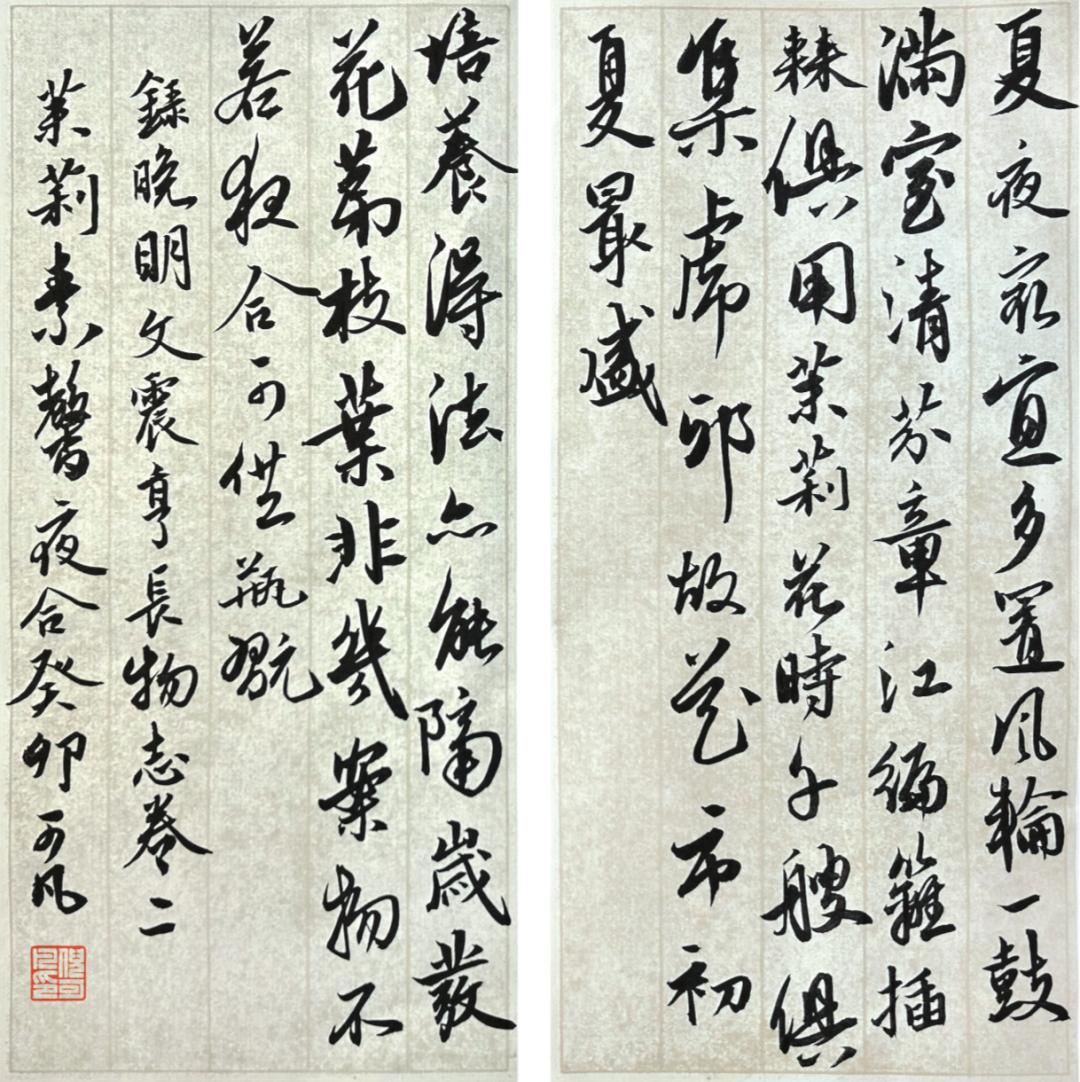 夏夜㝡宜多置風輪一鼓
滿室清芬章江編籬插
棘俱用茉莉花時千艘俱
集虎邱故花市初
夏最盛
培養得法亦能隔歲發
花苐枝葉非幾案物不
若夜合可供瓶翫
錄晚明文震亨長物志卷二
茉莉素馨夜合癸卯可風